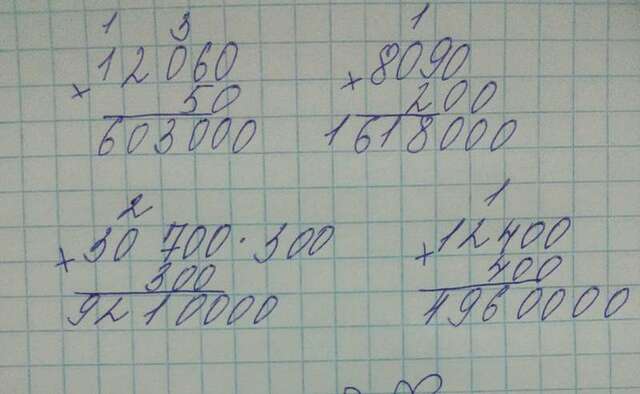 1 3
12060
× 50
603000
1
8090
× 200
1618000
2
× 30 700 · 300
300
9210000
1
× 12400
400
4960000